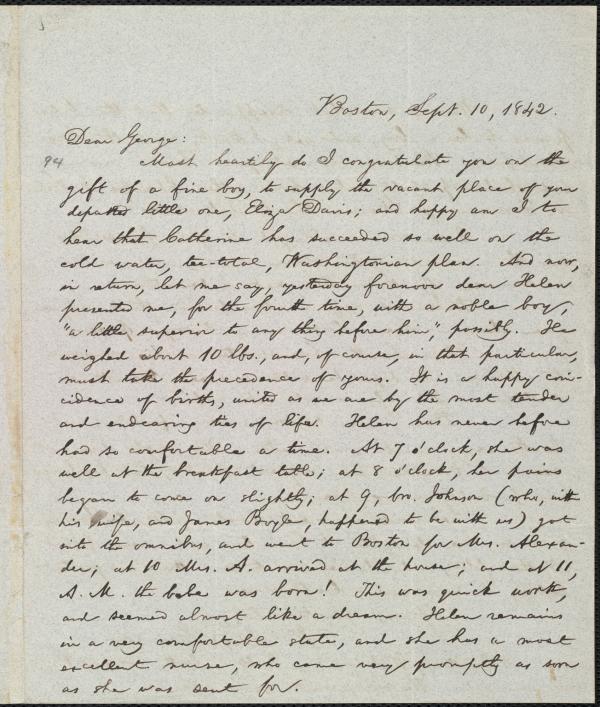 Boston, Sept. 10, 1842.
Dear George:
94
Most heartily do I congratulate you on the
gift of a fine boy, to supply the vacant place of your
departed little one, Eliza Davis; and happy am I to
hear that Catherine has succeeded so well on the
cold water, tee-total, Washingtonian plan. And now,
in return, let me say, yesterday forenoon dear Helen
presented me, for the fourth time, with a noble boy,
"a little superior to any thing before him," possibly. He
weighed about 10 lbs., and, of course, in that particular,
must take the precedence of yours. It is a happy coin-
cidence of births, united as we are by the most tender
and endearing ties of life. Helen has never before
had so comfortable a time. At 7 o'clock, she was
well at the breakfast table; at 8 o'clock, her pains
began to come on slightly; at 9, bro. Johnson (who, with
his wife, and James Boyle, happened to be with us) got
into the omnibus, and went to Boston for Mrs. Alexan-
der; at 10 Mrs. A. arrived at the house; and at 11,
A. M. the babe was born! This was quick work,
and seemed almost like a dream. Helen remains
in a very comfortable state, and she has a most
excellent nurse, who came very promptly as soon
as she was sent for.